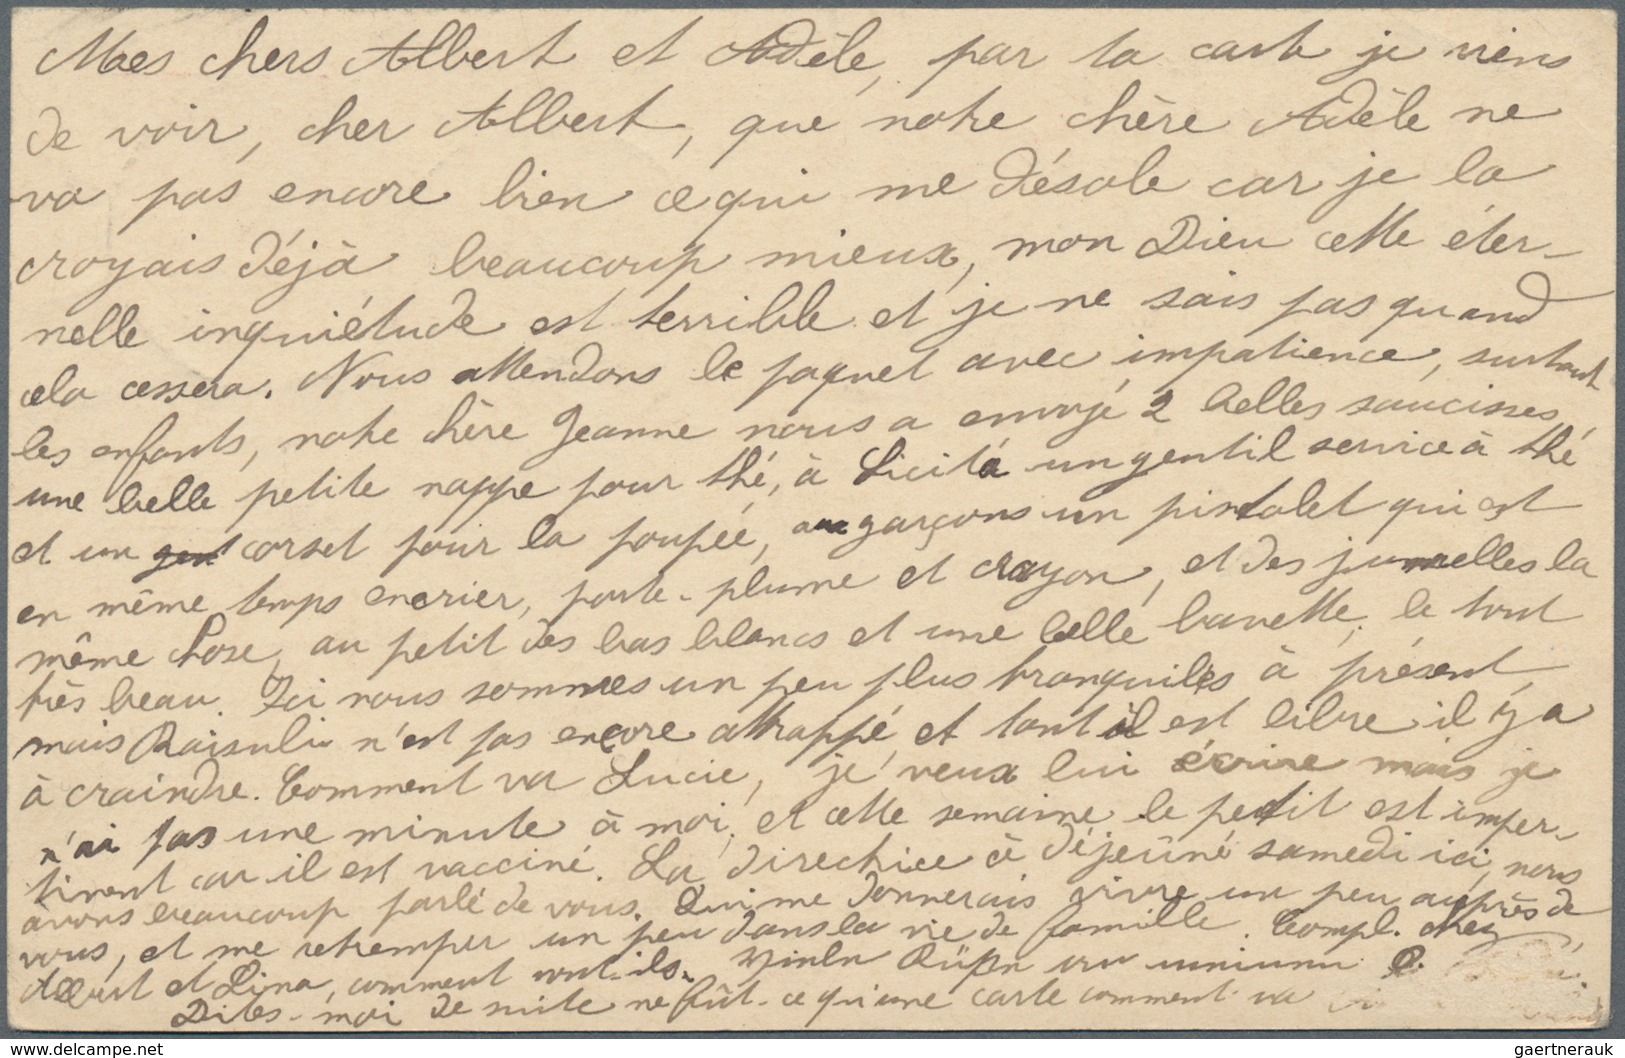 Mes chers Albert et Adèle, par ta carte je viens
de voir, cher Albert, que notre chère Adèle ne
va pas encore bien ce qui me désole car je la
croyais déjà beaucoup mieux, mon Dieu cette éter-
nelle inquiétude est terrible et je ne sais pas quand
cela cessera. Nous attendons le paquet avec impatience, surtout
les enfants, notre chère Jeanne nous a envoyé 2 belles saucisses,
une belle petite nappe pour thé, à Licita un gentil service à thé
et un corset pour la poupée, aux garçons un pistolet qui est
en même temps encrier, porte-plume et crayon, et des jumelles la
même chose, au petit des bas blancs et une belle bavette, le tout
très beau. Ici nous sommes un peu plus tranquilles à présent,
mais Raisuli n'est pas encore attrappé, et tant il est libre il y a
à craindre. Comment va Lucie, je veux lui écrire mais je
n'ai pas une minute à moi, et cette semaine le petit est imper-
tinent car il est vacciné. La directrice à déjeûné samedi ici, nous
avons beaucoup parlé de vous. Qui me donnerais vivre un peu auprès de
vous, et me retremper un peu dans la vie de famille. Compl. chez
Albert et Lina, comment vont-ils.
Dites-moi de suite ne fût-ce qu'une carte comment va
delcampe.net
gaertnerauk